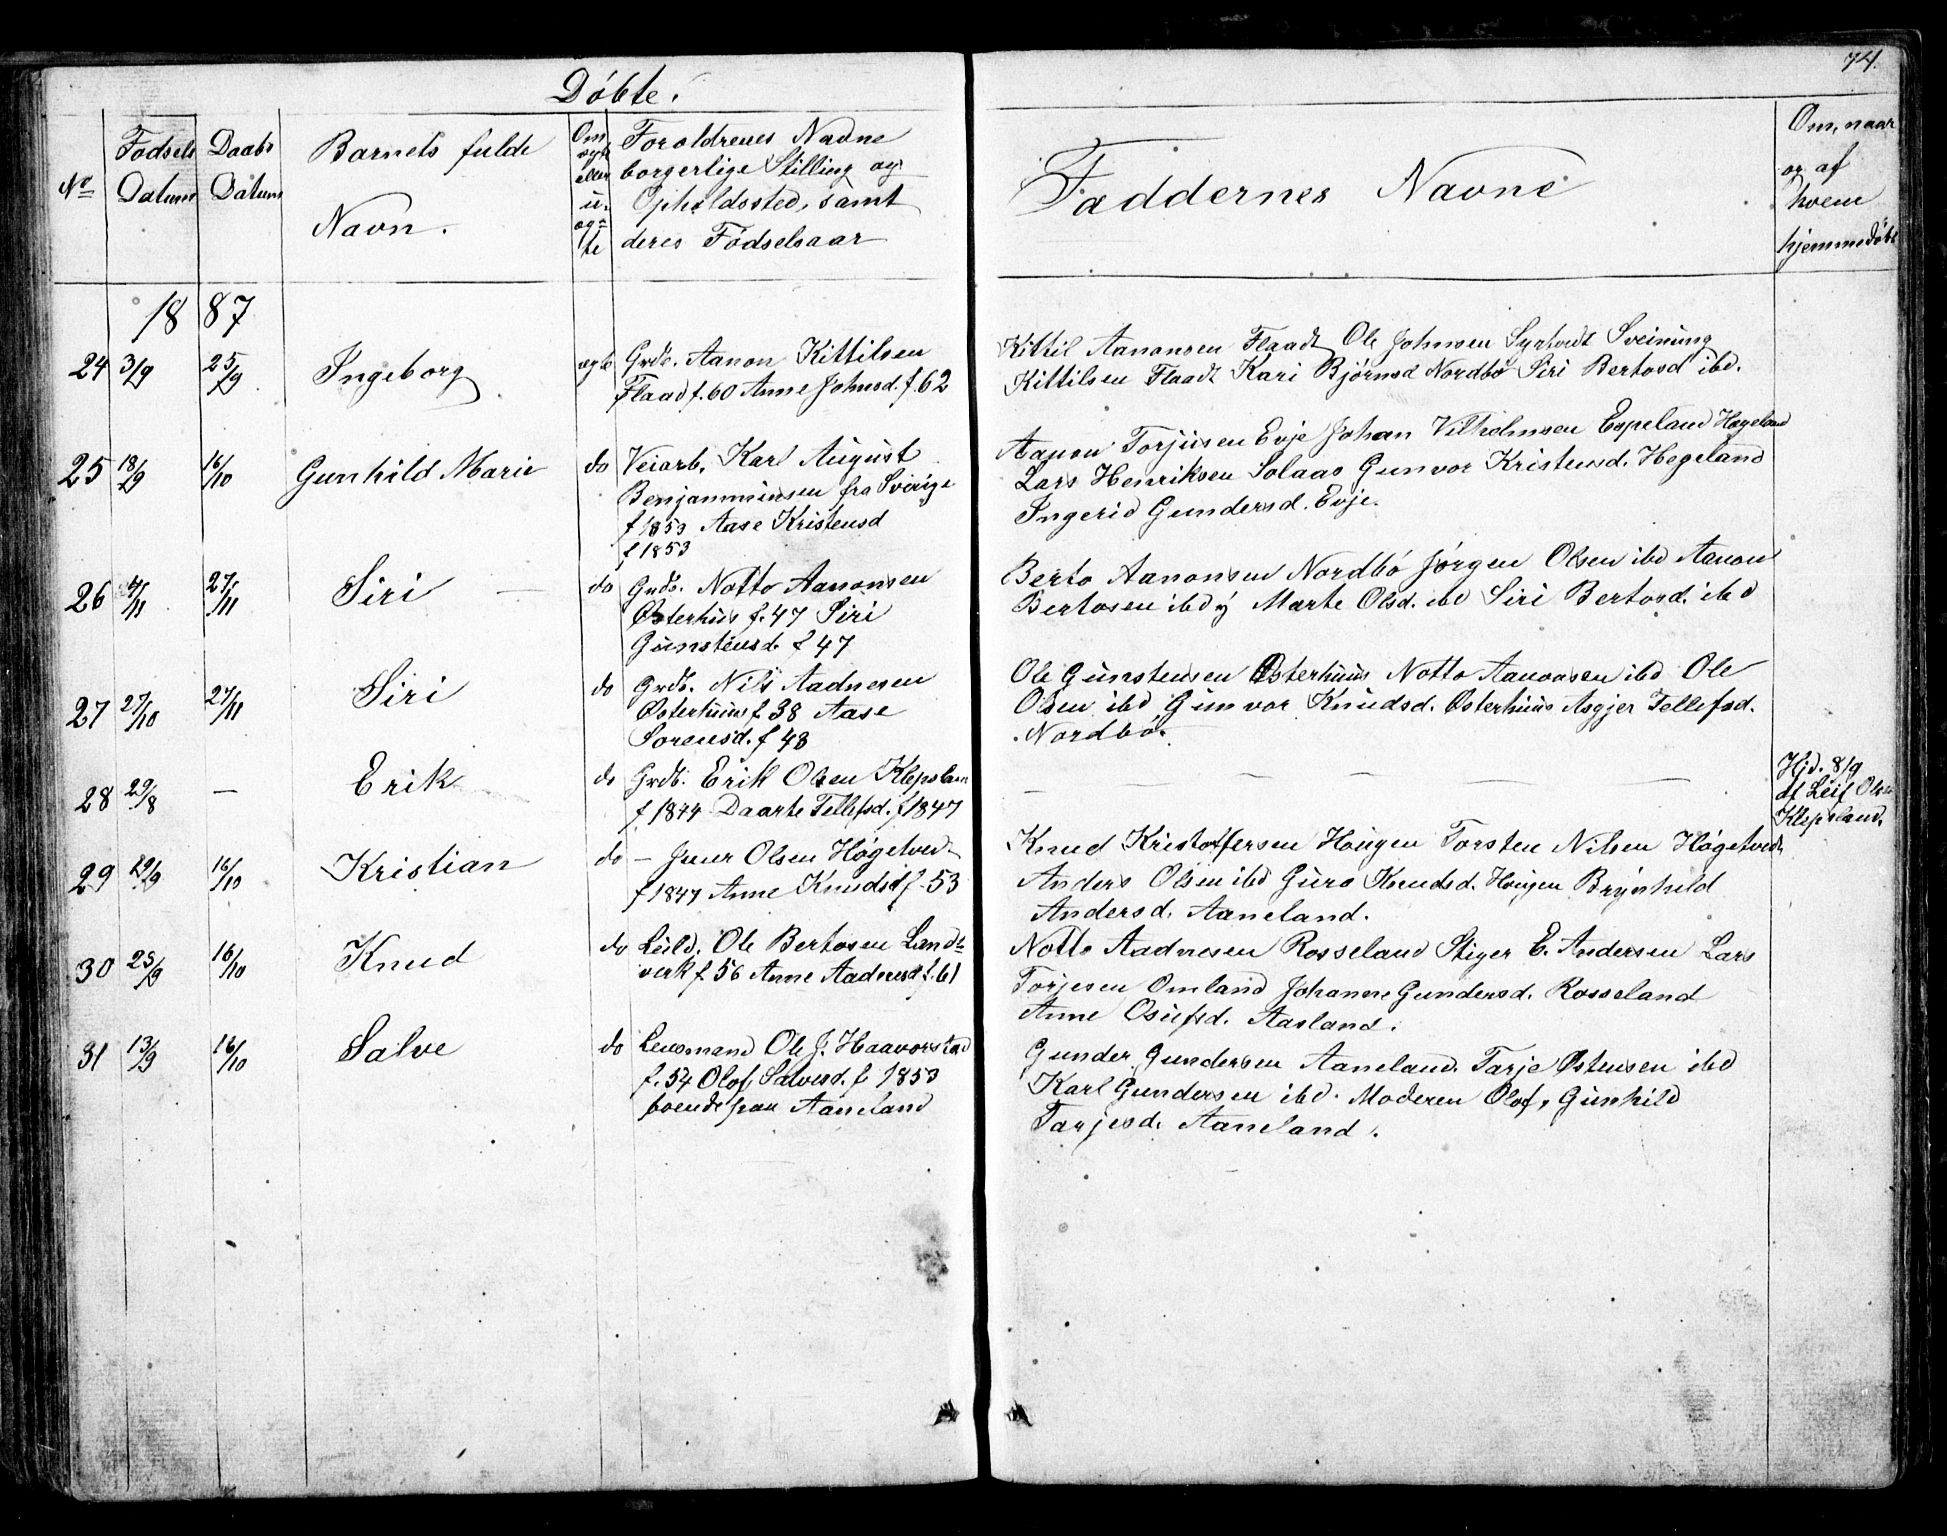 74.
Döbte.
No
Födsels Datum
Daabs Datum
Barnets fulde Navn.
Om ægte eller u-ægte
Foroldrenes Navne
borgerlige Stilling og
Opholdssted, samt
deres Födselsaar
Faddernes Navne
Om, naar
og af
hvem
hjemmedöbt
1887
24 3/9 25/9 Ingeborg ægte Grdb. Aanon Kittilsen
Flaad f. 60 Anne Johnsd. f. 62
Kittil Aanonsen Flaadt Ole Johnsen Syrtvedt Sveinung
Kittilsen Flaadt Kari Bjørnsd Nordbö Siri Bertosd ibd.
25 18/9 16/10 Gunhild Marie do Veiarb. Karl August
Benjamminsen fra Sverige
f 1853 Aase Kristensd
f 1853
Aanon Torjusen Evje Johan Vilhelmsen Espeland Hegeland
Lars Henriksen Solaas Gunvor Kristensd. Hegeland
Ingerid Gundersd. Evje.
26 4/11 27/11 Siri do Grdb. Notto Aanonsen
Østerhus f. 47 Siri
Gunstensd. f 47
Berto Aanonsen Nordbö Jørgen Olsen ibd Aanon
Bertosen ibd Marte Olsd. ibd Siri Bertosd. ibd
27 27/10 27/11 Siri do Grdb. Nils Aadnesen
Østerhuus f. 38 Aase
Sorensd. f 48
Ole Gunstensen Østerhuus Notto Aanonsen ibd Ole
Olsen ibd Gunvor Knudsd. Østerhuus Asgjer Tellefsd.
Nordbö.
28 29/8 — Erik do Grdb. Erik Olsen Klepsland
f 1844 Daarte Tellefsd. f 1847
— — — — —
Hjd. 8/9
af Leif Olsen
Klepsland.
29 29/9 16/10 Kristian do — Juur Olsen Høgetved
f 1847 Anne Knudsd f. 53
Knud Kristoffersen Hougen Torsten Nilsen Høgetvedt
Anders Olsen ibd Guro Knudsd. Hougen Brynhild
Andersd. Aaneland.
30 25/9 16/10 Knud do Leild. Ole Bertosen Land-
verk f 56 Anne Aadnesd f. 61
Notto Aadnesen Rosseland Stiger E. Andersen Lars
Torjesen Omland Johanne Gundersd. Rosseland
Anne Osufsd. Aasland.
31 13/9 16/10 Salve do Lensmand Ole J. Haavorstad
f. 54 Olof Salvesd. f 1853
boende paa Aaneland
Gunder Gundersen Aaneland. Tarje Østensen ibd
Karl Gundersen ibd. Moderen Olof, Gunhild
Tarjesd. Aaneland.